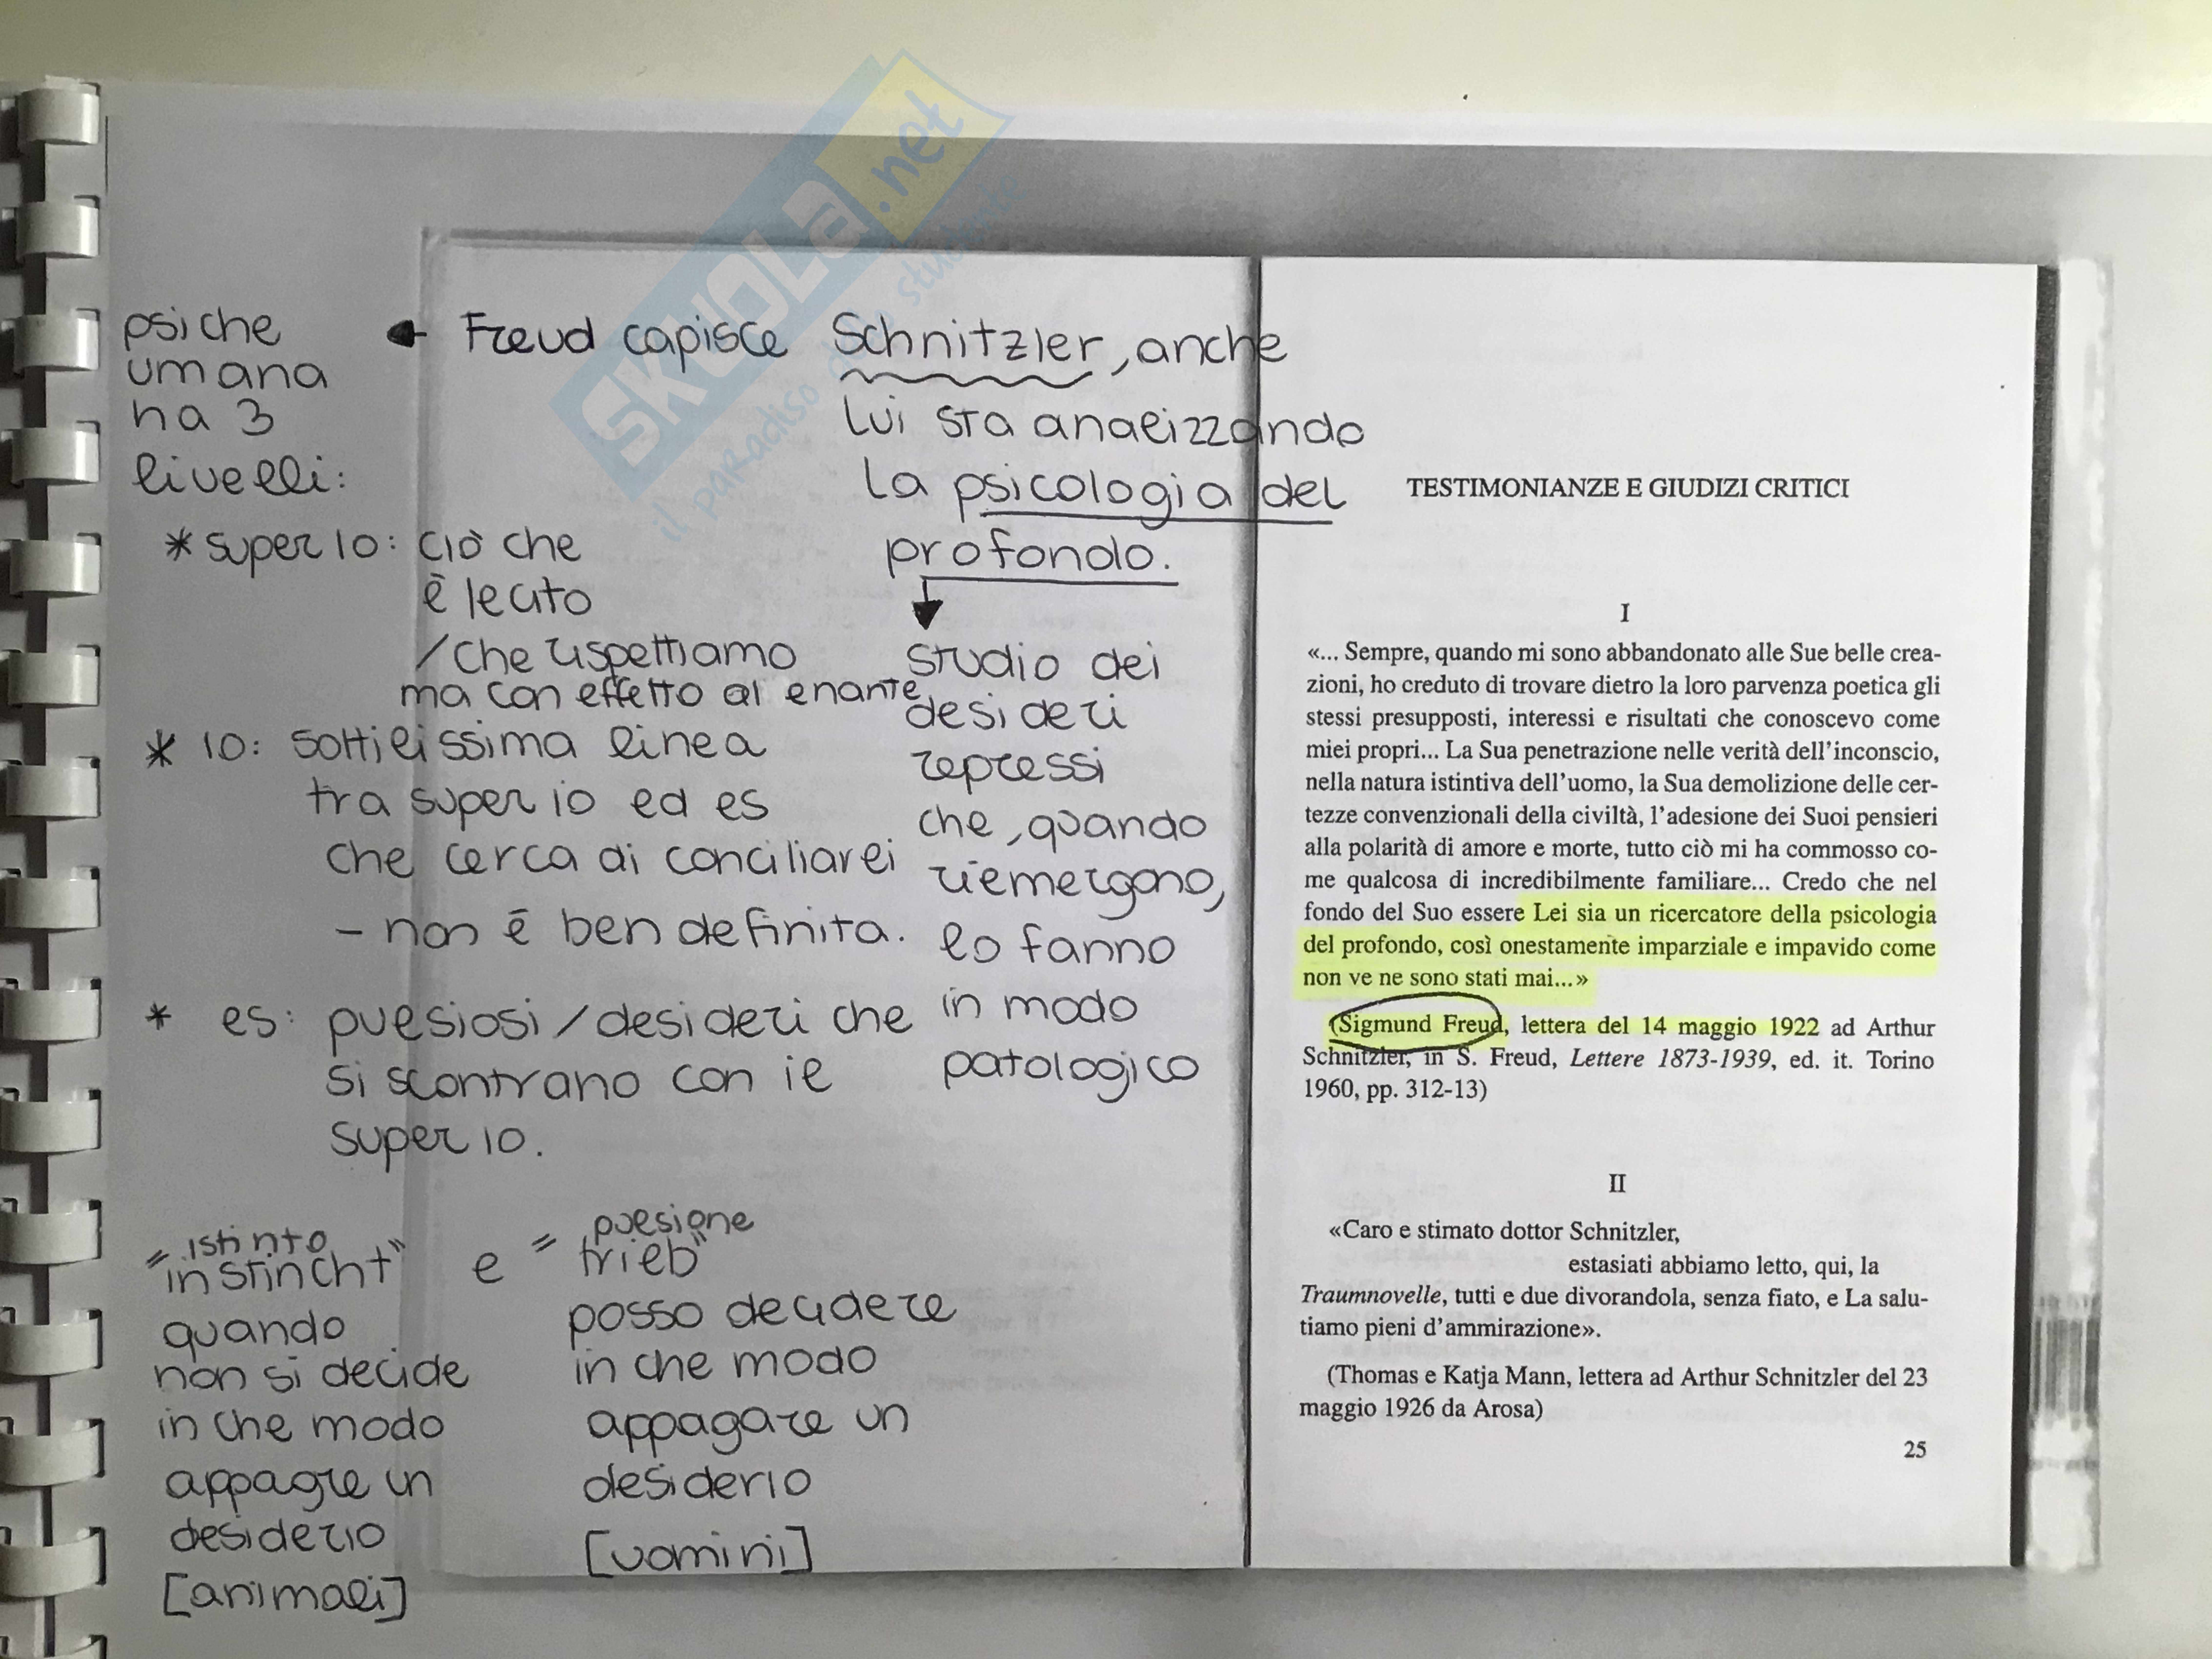 SKUOLA.net
il paradiso dello studente
psiche
umana
ha 3
livelli:
Freud capisce Schnitzler, anche
lui sta analizzando
la psicologia del
profondo.
studio dei
desideri
repressi
che, quando
riemergono,
lo fanno
in modo
patologico
* super io: ciò che
è lecito
/che rispettiamo
ma con effetto al
* io: sottilissima linea
tra super io ed es
che cerca di conciliarli
- non è ben definita.
* es: pulsiosi/desideri che
si scontrano con il
super io.
istinto
"instincht" e
quando
non si decide
in che modo
appagre un
desiderio
[animali]
pulsione
"trieb"
posso decidere
in che modo
appagare un
desiderio
[uomini]
TESTIMONIANZE E GIUDIZI CRITICI
I
«... Sempre, quando mi sono abbandonato alle Sue belle crea-
zioni, ho creduto di trovare dietro la loro parvenza poetica gli
stessi presupposti, interessi e risultati che conoscevo come
miei propri... La Sua penetrazione nelle verità dell'inconscio,
nella natura istintiva dell'uomo, la Sua demolizione delle cer-
tezze convenzionali della civiltà, l'adesione dei Suoi pensieri
alla polarità di amore e morte, tutto ciò mi ha commosso co-
me qualcosa di incredibilmente familiare... Credo che nel
fondo del Suo essere Lei sia un ricercatore della psicologia
del profondo, così onestamente imparziale e impavido come
non ve ne sono stati mai...»
(Sigmund Freud, lettera del 14 maggio 1922 ad Arthur
Schnitzler, in S. Freud, Lettere 1873-1939, ed. it. Torino
1960, pp. 312-13)
II
«Caro e stimato dottor Schnitzler,
estasiati abbiamo letto, qui, la
Traumnovelle, tutti e due divorandola, senza fiato, e La salu-
tiamo pieni d'ammirazione».
(Thomas e Katja Mann, lettera ad Arthur Schnitzler del 23
maggio 1926 da Arosa)
25